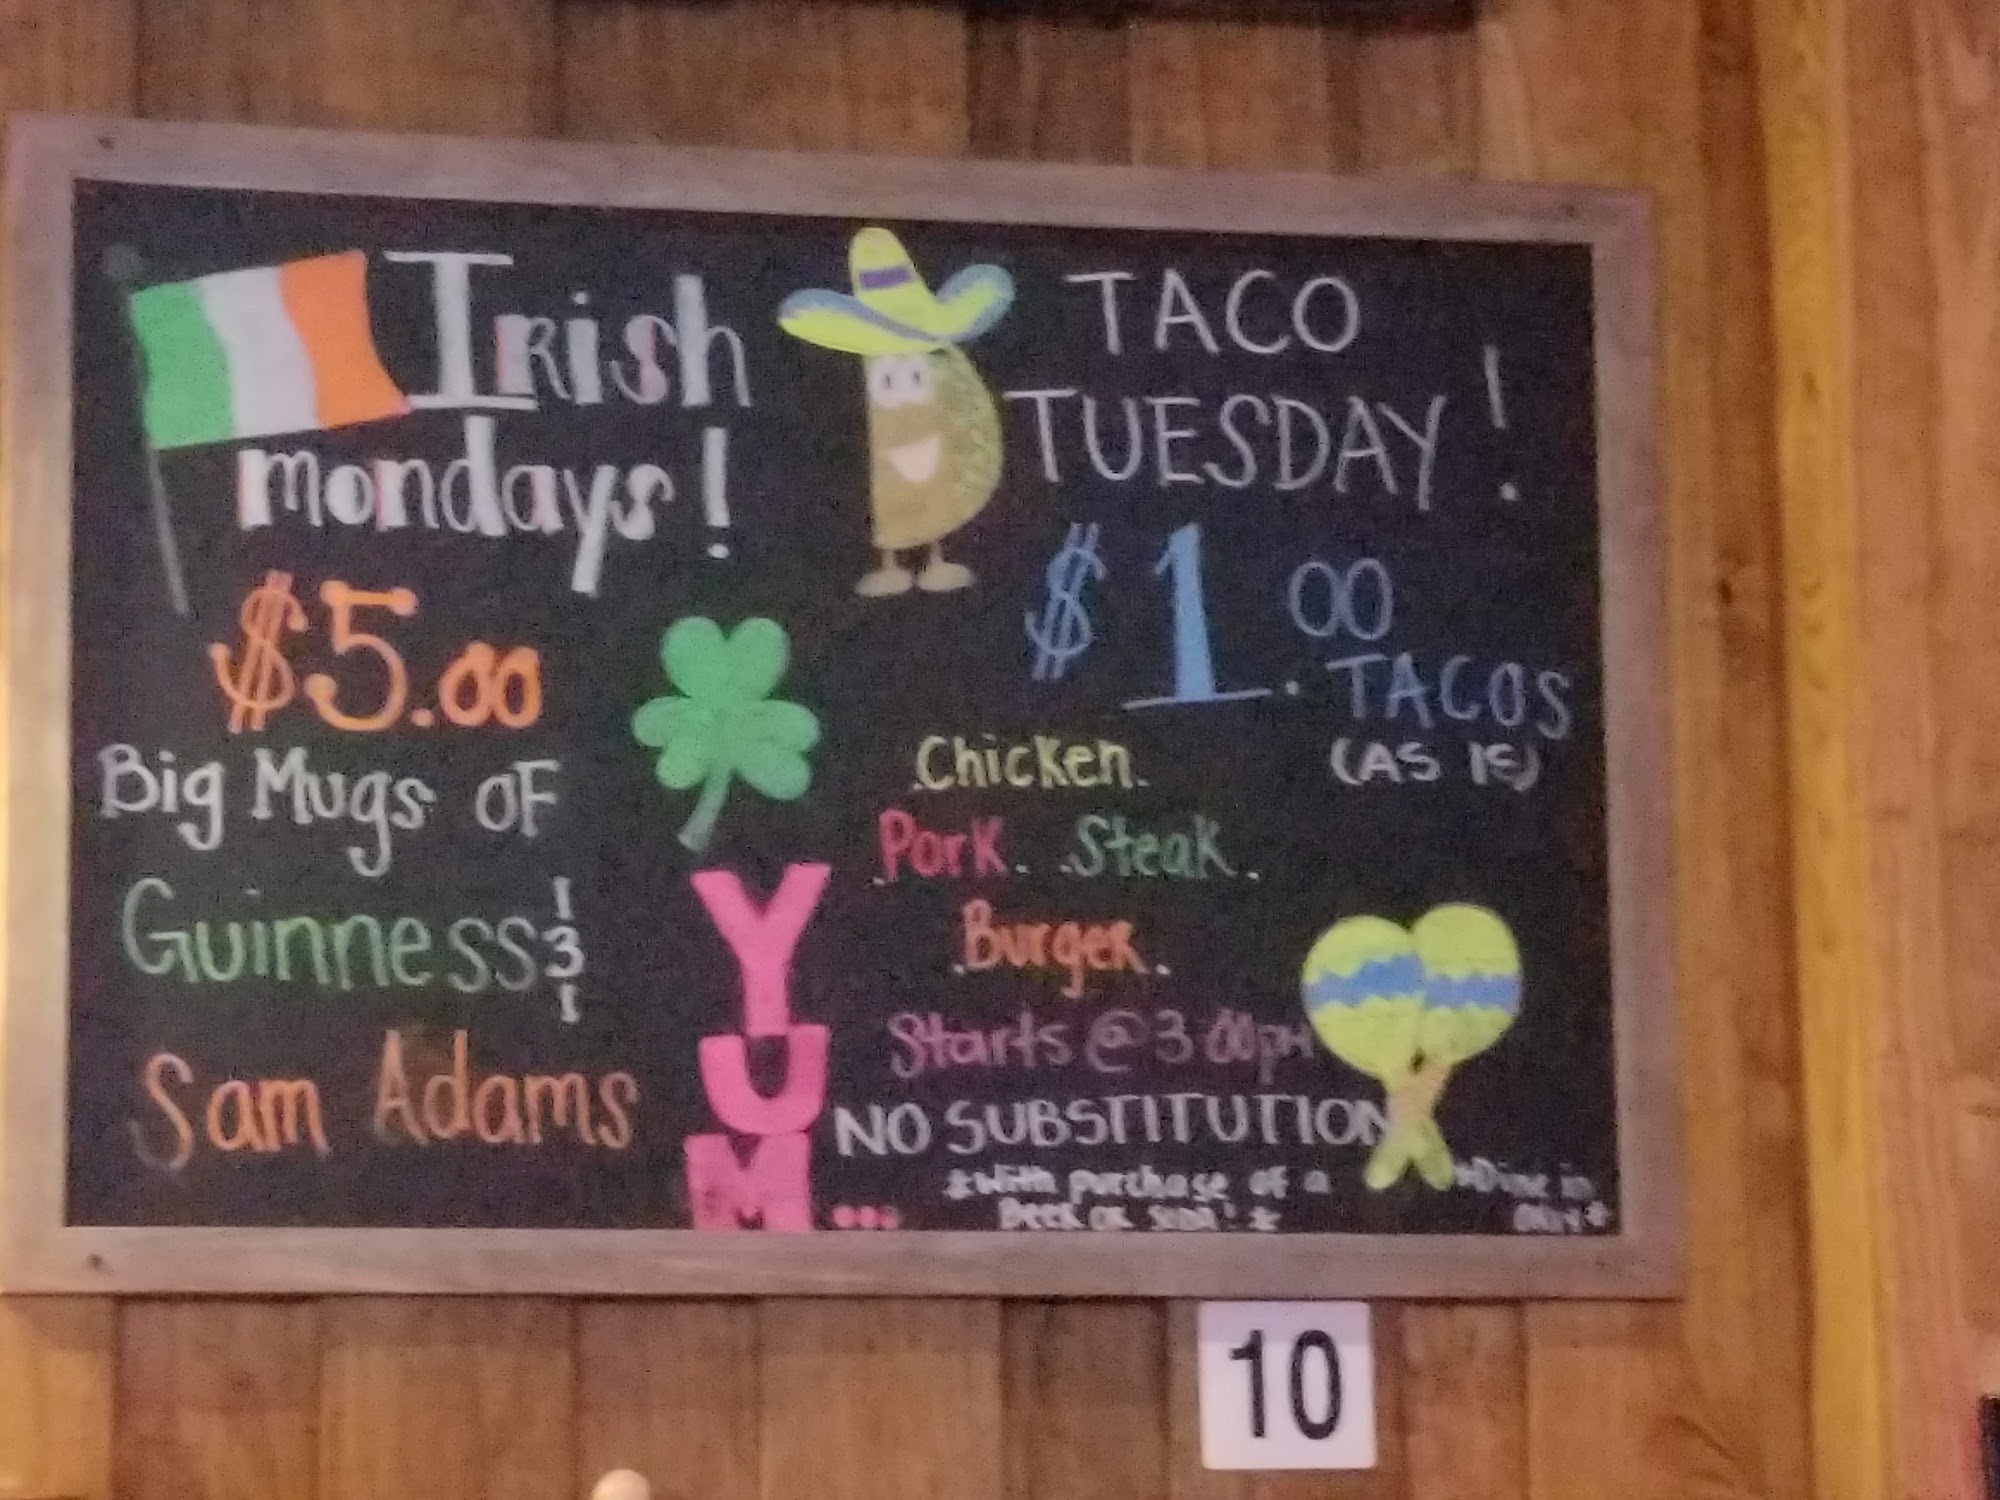 Irish
mondays!
$5.00
Big Mugs of
Guinness &
Sam Adams
YUM...
TACO
TUESDAY!
$1.00
TACOS
(AS IS)
Chicken.
.Pork. .Steak.
.Burger.
Starts @ 3:00pm
NO SUBSTITUTION
*With purchase of a
Beer or soda!*
*Dine in
only*
10